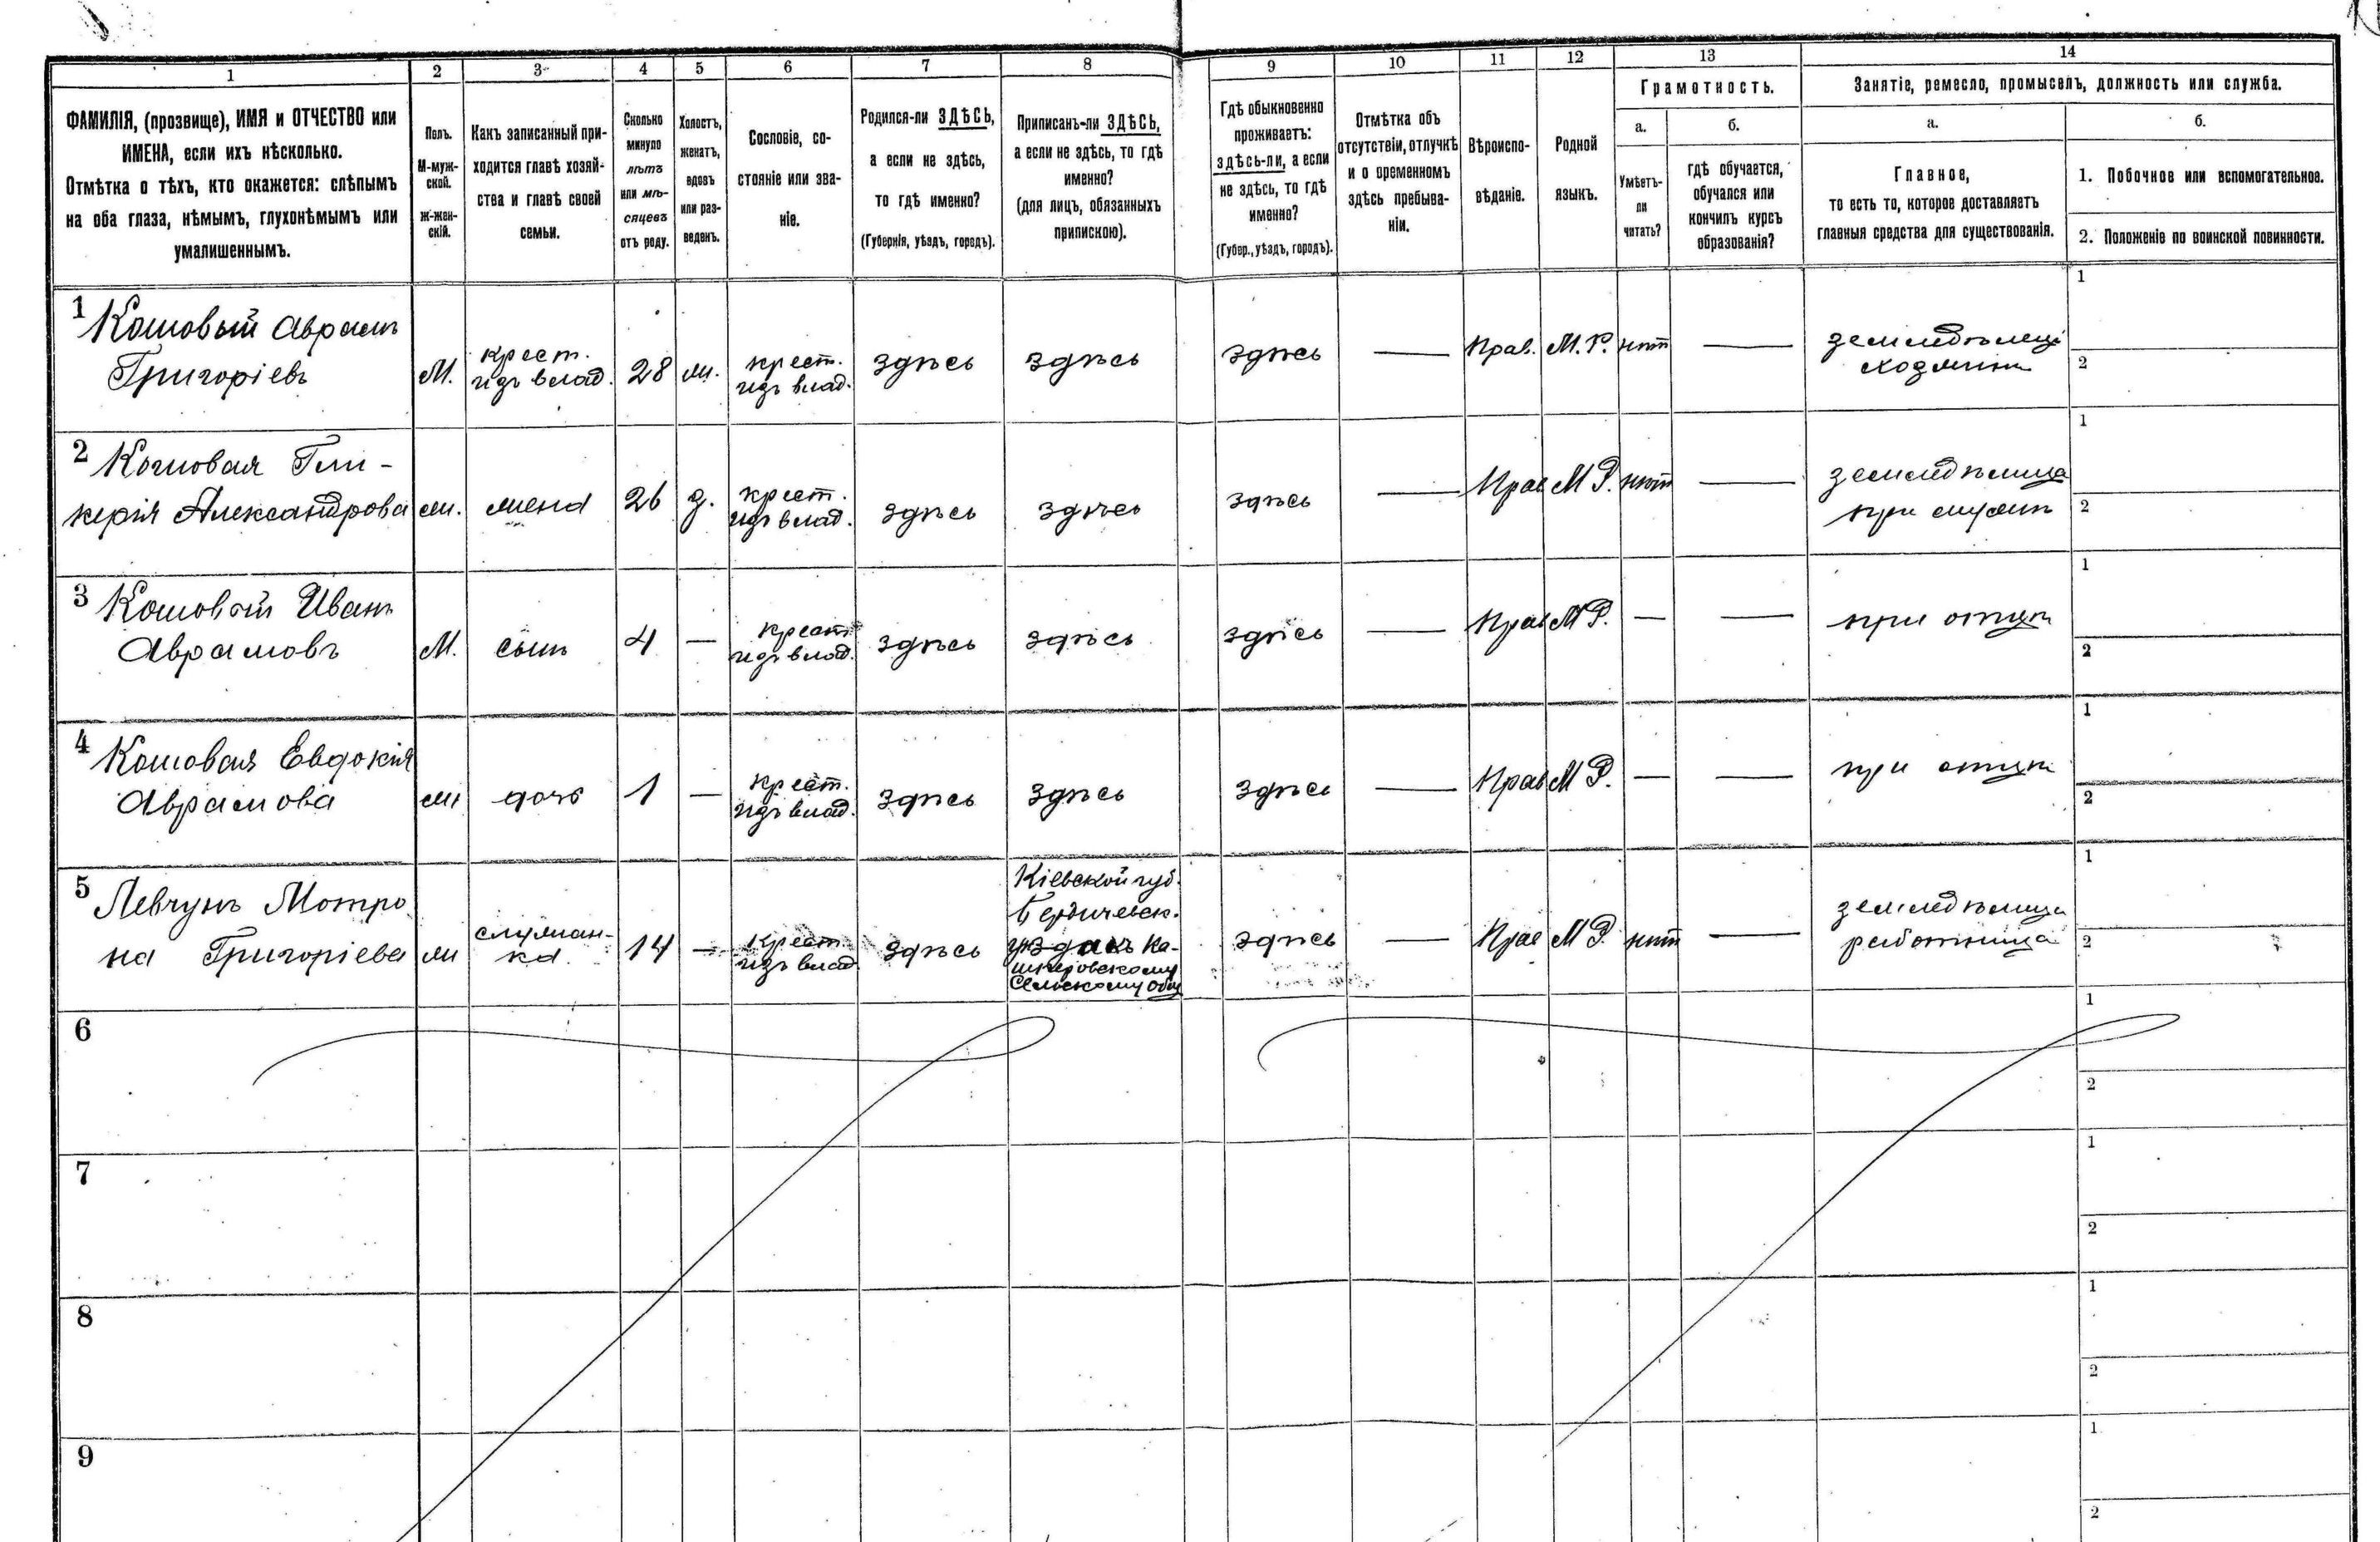 1
2
3
4
5
6
7
8
9
10
11
12
13
14
ФАМИЛІЯ, (прозвище), ИМЯ и ОТЧЕСТВО или
ИМЕНА, если ихъ нѣсколько.
Отмѣтка о тѣхъ, кто окажется: слѣпымъ
на оба глаза, нѣмымъ, глухонѣмымъ или
умалишеннымъ.
Полъ.
М-муж-
ской.
Ж-жен-
скій.
Какъ записанный при-
ходится главѣ хозяй-
ства и главѣ своей
семьи.
Сколько
минуло
лѣтъ
или мѣ-
сяцевъ
отъ роду.
Холостъ,
женатъ,
вдовъ
или раз-
веденъ.
Сословіе, со-
стояніе или зва-
ніе.
Родился-ли ЗДѢСЬ,
а если не здѣсь,
то гдѣ именно?
(Губернія, уѣздъ, городъ).
Приписанъ-ли ЗДѢСЬ,
а если не здѣсь, то гдѣ
именно?
(для лицъ, обязанныхъ
припискою).
Гдѣ обыкновенно
проживаетъ:
здѣсь-ли, а если
не здѣсь, то гдѣ
именно?
(Губер., уѣздъ, городъ).
Отмѣтка объ
отсутствіи, отлучкѣ
и о временномъ
здѣсь пребыва-
ніи.
Вѣроиспо-
вѣданіе.
Родной
языкъ.
Грамотность.
а.
Умѣетъ-
ли
читать?
б.
гдѣ обучается,
обучался или
кончилъ курсъ
образованія?
Занятіе, ремесло, промыселъ, должность или служба.
а.
Главное,
то есть то, которое доставляетъ
главныя средства для существованія.
б.
1. Побочное или вспомогательное.
2. Положеніе по воинской повинности.
1 Кошовый Аврамъ
Григоріевъ
М.
крест.
изъ влад.
28
ж.
крест.
изъ влад.
здѣсь
здѣсь
здѣсь
—
Прав.
М. Р.
нѣт
—
земледѣлецъ
хозяинъ
1
2
2 Кошовая Гли-
керія Александрова
ж.
жена
26
з.
крест.
изъ влад.
здѣсь
здѣсь
здѣсь
—
Прав
М Р.
нѣт
—
земледѣлица
при мужѣ
1
2
3 Кошовый Иванъ
Аврамовъ
М.
сынъ
4
—
крест.
изъ влад.
здѣсь
здѣсь
здѣсь
—
Прав
М Р.
—
—
при отцѣ
1
2
4 Кошовая Евдокія
Аврамова
ж
дочь
1
—
крест.
изъ влад.
здѣсь
здѣсь
здѣсь
—
Прав
М Р.
—
—
при отцѣ
1
2
5 Левчукъ Мотро
на Григоріева
ж
служан-
ка
14
—
крест.
изъ влад
здѣсь
Кіевской губ.
Бердичевск.
Сельскому общ
здѣсь
—
Прав
М Р.
нѣт
—
земледѣлица
работница
1
2
6
1
2
7
1
2
8
1
2
9
1
2